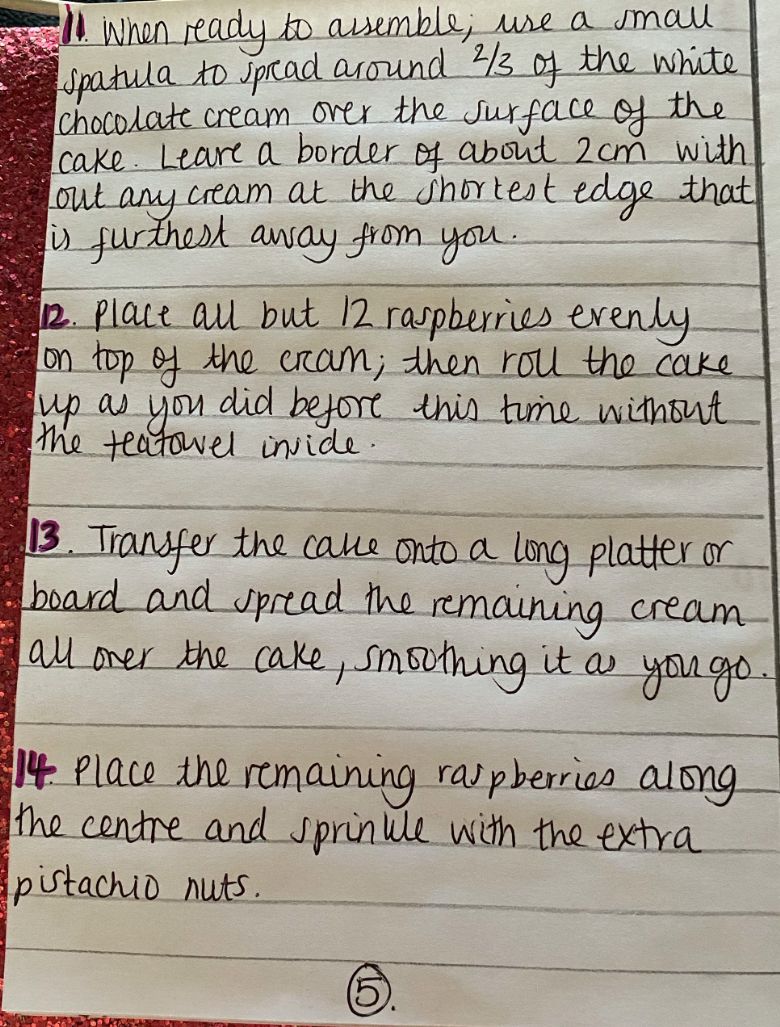 11. When ready to assemble; use a small
spatula to spread around 2/3 of the white
chocolate cream over the surface of the
cake. Leave a border of about 2cm with
out any cream at the shortest edge that
is furthest away from you.
12. Place all but 12 raspberries evenly
on top of the cream; then roll the cake
up as you did before this time without
the teatowel inside.
13. Transfer the cake onto a long platter or
board and spread the remaining cream
all over the cake, smoothing it as you go.
14. Place the remaining raspberries along
the centre and sprinkle with the extra
pistachio nuts.
5.